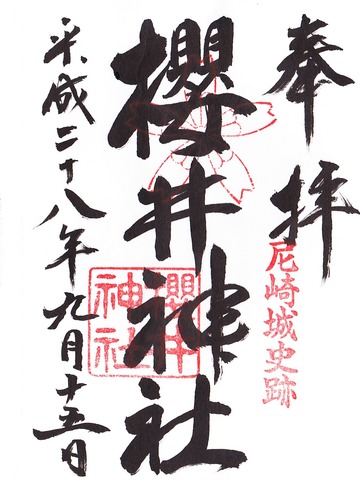 奉拝
尼崎城史跡
櫻井神社
櫻井神社
平成二十八年九月十五日